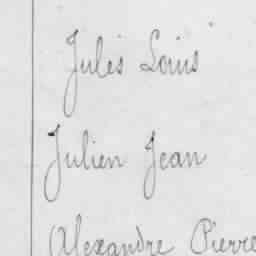 Jules Louis
Julien Jean
Alexandre Pierre